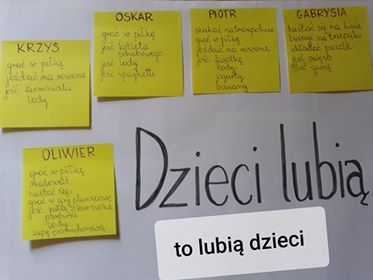 KRZYŚ
grać w piłkę
jeździć na rowerze
jeść: ziemniaki
lody
OSKAR
grać w piłkę
jeść kotleta
schabowego
jeść lody
jeść spaghetti
PIOTR
skakać na trampolinie
grać w piłkę
jeździć na rowerze
jeść:
lody
jogurty
banany
GABRYSIA
huśtać się na linie
układać puzzle
jeść mięso
żuć gumę
OLIWIER
grać w piłkę
malować
huśtać się
grać w gry planszowe
jeść:
lody
zupę pomidorową
Dzieci lubią
to lubią dzieci